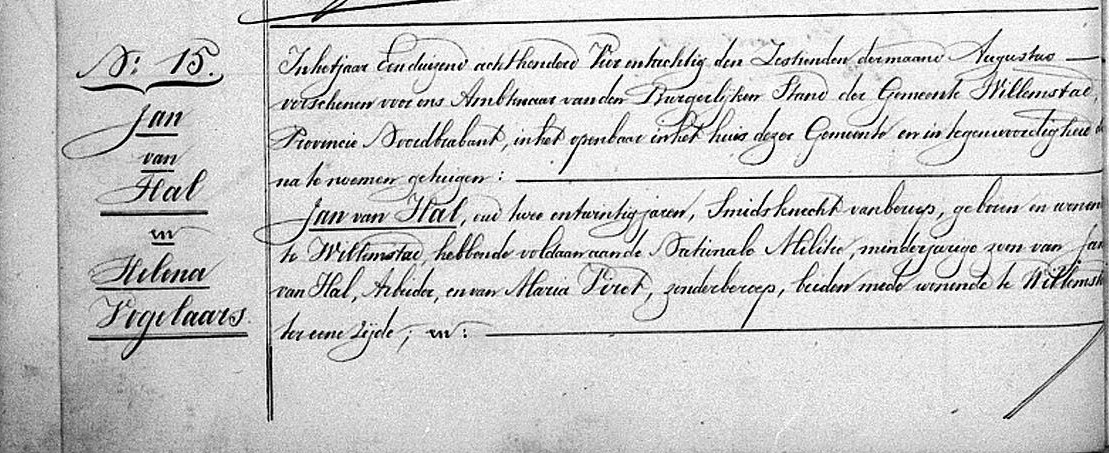 N: 15.
Jan
van
Hal
en
Helena
Vogelaars.
In het jaar Eenduizend achthonderd Vier en tachtig den Zestienden der maand Augustus
verschenen voor ons Ambtenaar van den Burgerlijken Stand der Gemeente Willemstad,
Provincie Noordbrabant, in het openbaar in het huis dezer Gemeente en in tegenwoordigheid de
na te noemen getuigen:
Jan van Hal, oud twee en twintig jaren, Smidsknecht van beroep, geboren en wonen
te Willemstad, hebbende voldaan aan de Nationale Militie, minderjarige zoon van Jan
van Hal, Arbeider, en van Maria Viret, zonder beroep, beiden mede wonende te Willemst
ter eene zijde; en: